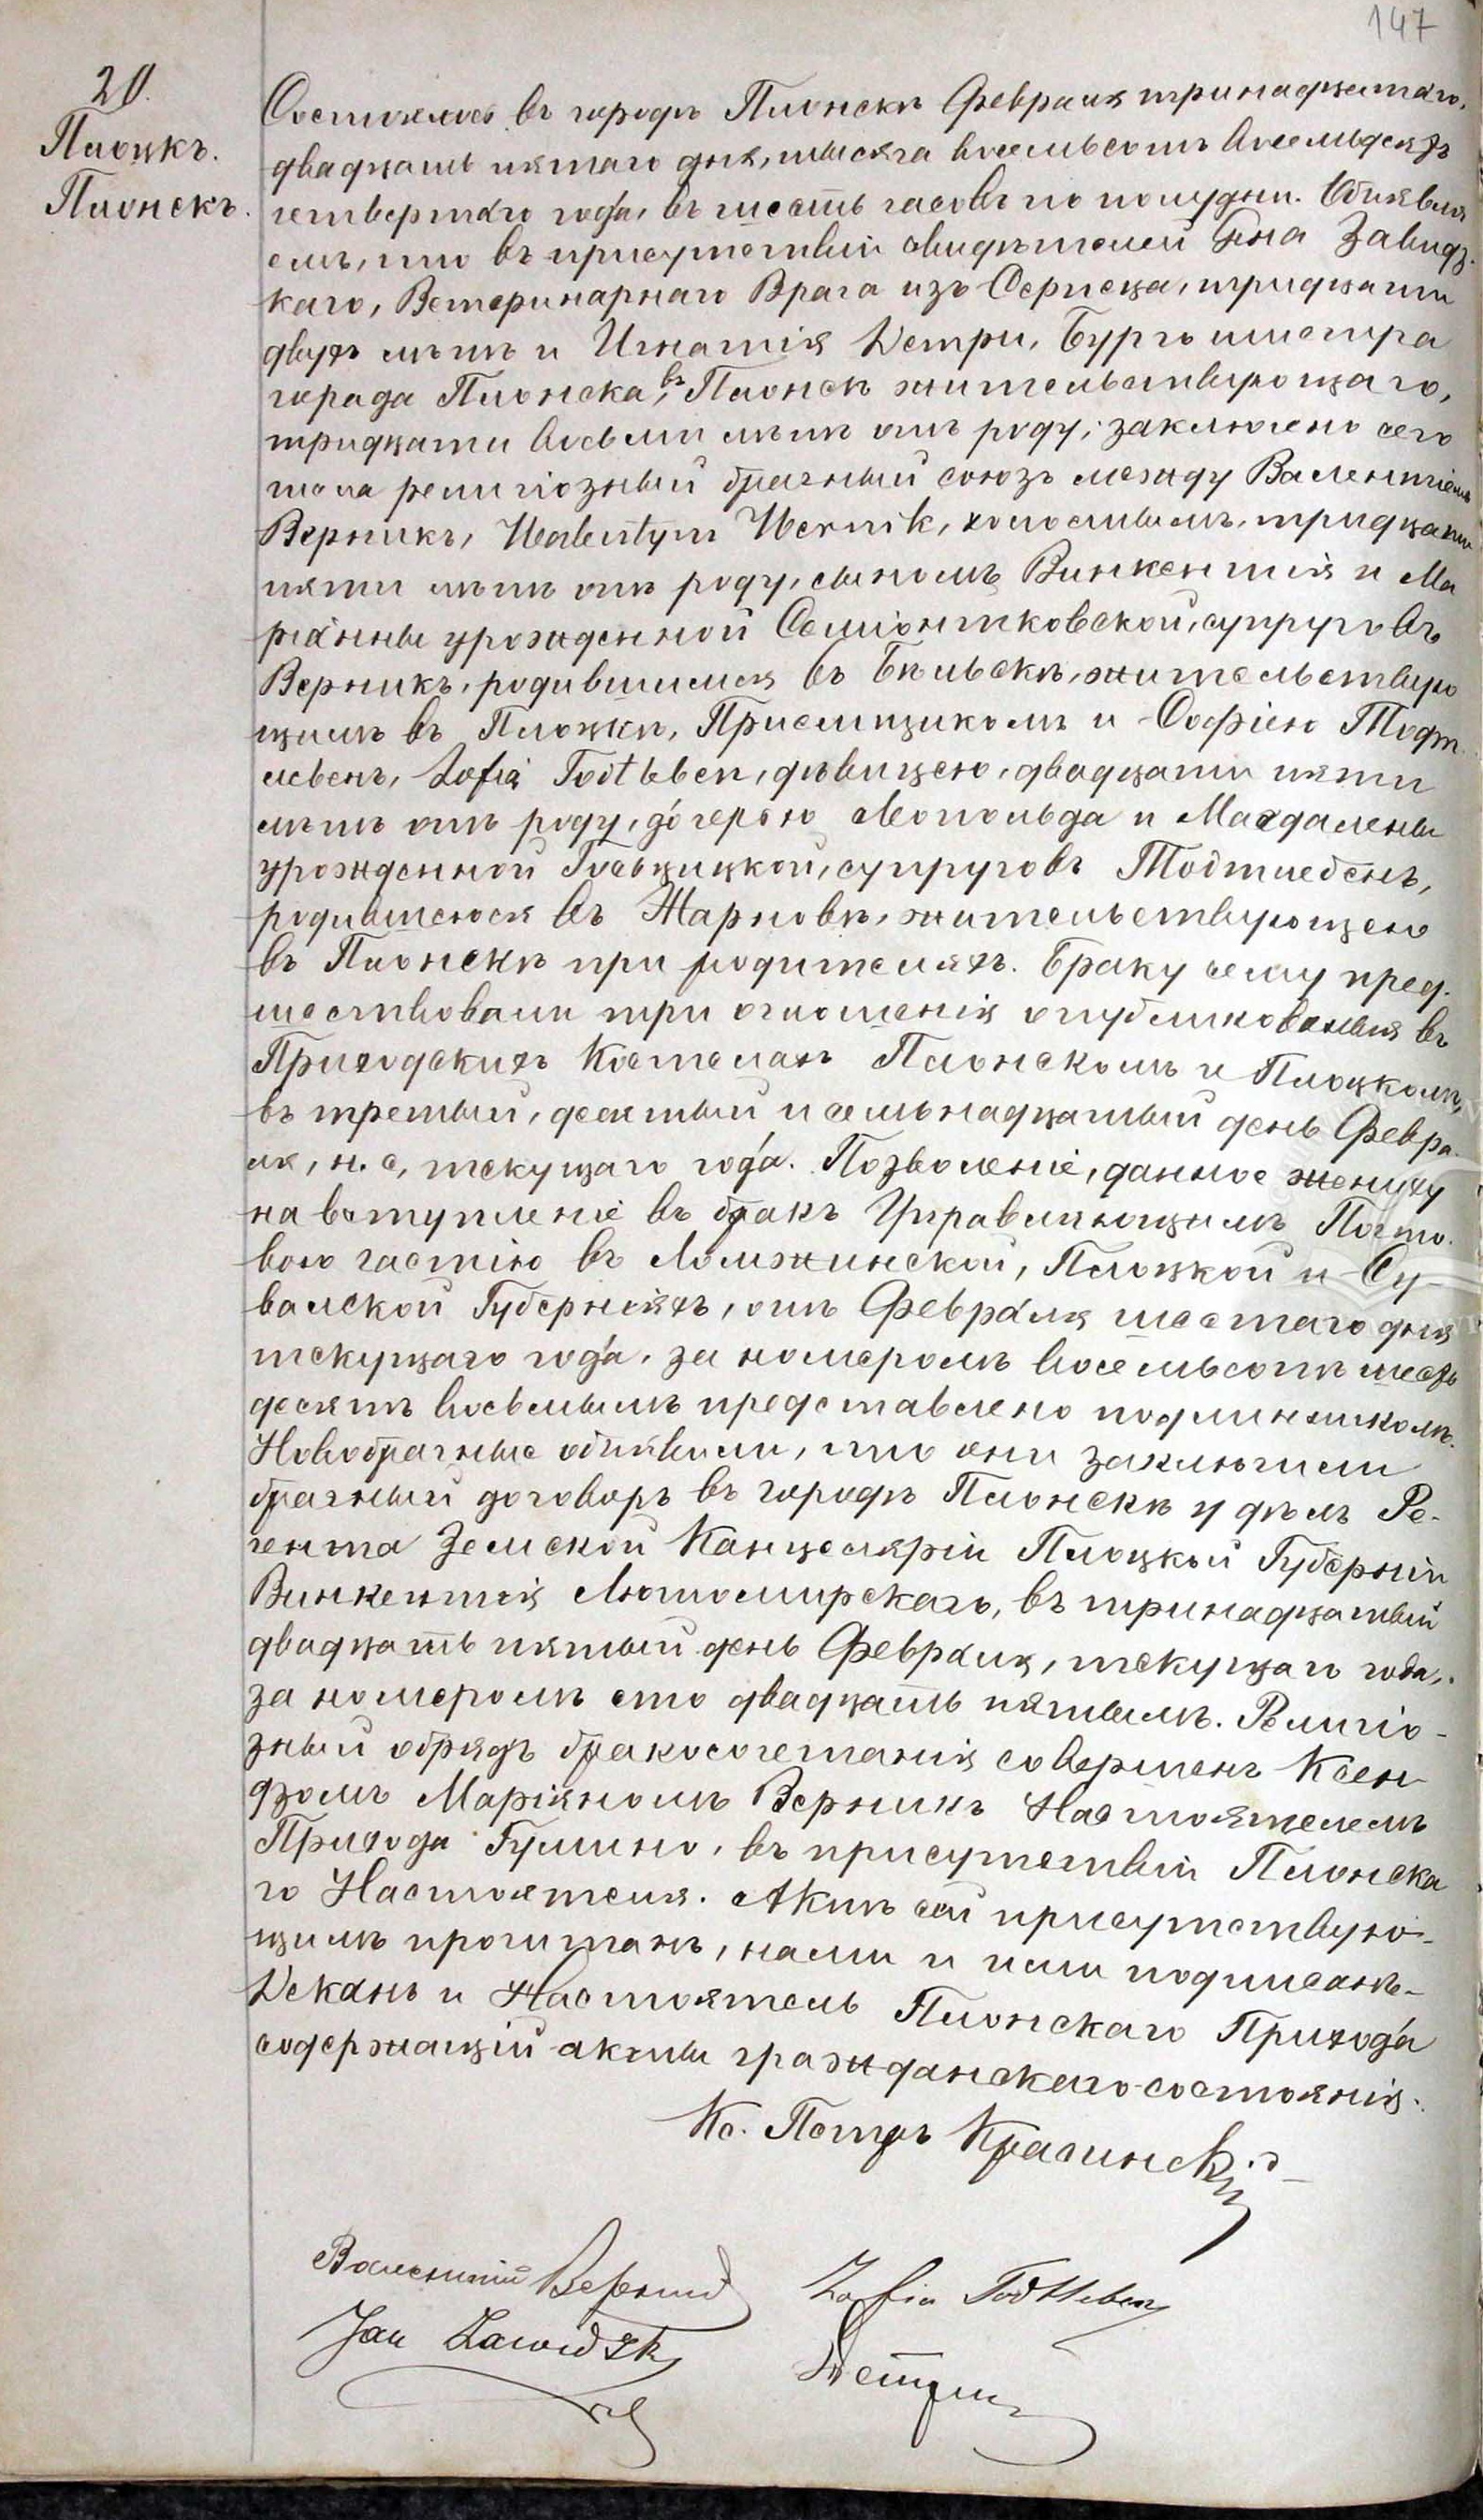 147
20.
Плоцкъ.
Плонскъ.
Состоялось въ городѣ Плонскѣ Февраля тринадцатаго,
двадцать пятаго дня, тысяча восемьсотъ восемьдесятъ
четвертаго года, въ шесть часовъ по полудни. Объявля
емъ, что въ присутствіи свидѣтелей Яна Завидз-
каго, Ветеринарнаго Врача изъ Серпеца, тридцати
двухъ лѣтъ и Игнатія Детри, Бургъ мистра
города Плонска, въ Плонскѣ жительствующаго,
тридцати восьми лѣтъ отъ роду; заключено сего
числа религіозный брачный союзъ между Валентіемъ
Верникъ, Walentym Wernik, холостымъ, тридцати
пяти лѣтъ отъ роду, сыномъ Винкентія и Ма
ріанны урожденной Семіонтковской, супруговъ
Верникъ, родившимся въ Бѣльскѣ, жительствую
щимъ въ Плоцкѣ, Пріемщикомъ и Софіею Тодт
лебенъ, Zofią Todtleben, дѣвицею, двадцати пяти
лѣтъ отъ роду, дочерью Леопольда и Магдалены
урожденной Госьцицкой, супруговъ Тодтлебенъ,
родившеюся въ Жарновѣ, жительствующею
въ Плонскѣ при родителяхъ. Браку сему пред-
шествовали три оглошенія опубликованныя въ
Приходскихъ Костелахъ Плонскомъ и Плоцкомъ,
въ третій, десятый и семьнадцатый день Февра-
ля, н. с, текущаго года. Позволеніе, данное жениху
на вступленіе въ бракъ Управляющимъ Почто-
вою частію въ Ломжинской, Плоцкой и Су-
валской Губерніяхъ, отъ Февраля шестаго дня
текущаго года, за номеромъ восемьсотъ шесть
десятъ восьмымъ представлено подлинникомъ.
Новобрачные объявили, что они заключили
брачный договоръ въ городѣ Плонскѣ у дѣлъ Ре-
гента Земской Канцеляріи Плоцкой Губерніи
Винкентія Лютомирскаго, въ тринадцатый
двадцать пятый день Февраля, текущаго года,
за номеромъ сто двадцать пятымъ. Религіо-
зный обрядъ бракосочетанія совершенъ Ксен
дзомъ Маріяномъ Верникъ Настоятелемъ
Прихода Гумино, въ присутствіи Плонска
го Настоятеля. Актъ сей присутствую-
щимъ прочитанъ, нами и ими подписанъ.-
Деканъ и Настоятель Плонскаго Прихода
содержащій акты гражданскаго состоянія.
Кс. Петръ Красинскій
Валентій Верникъ Zofia Todtleben
Jan Zawidzki Детри